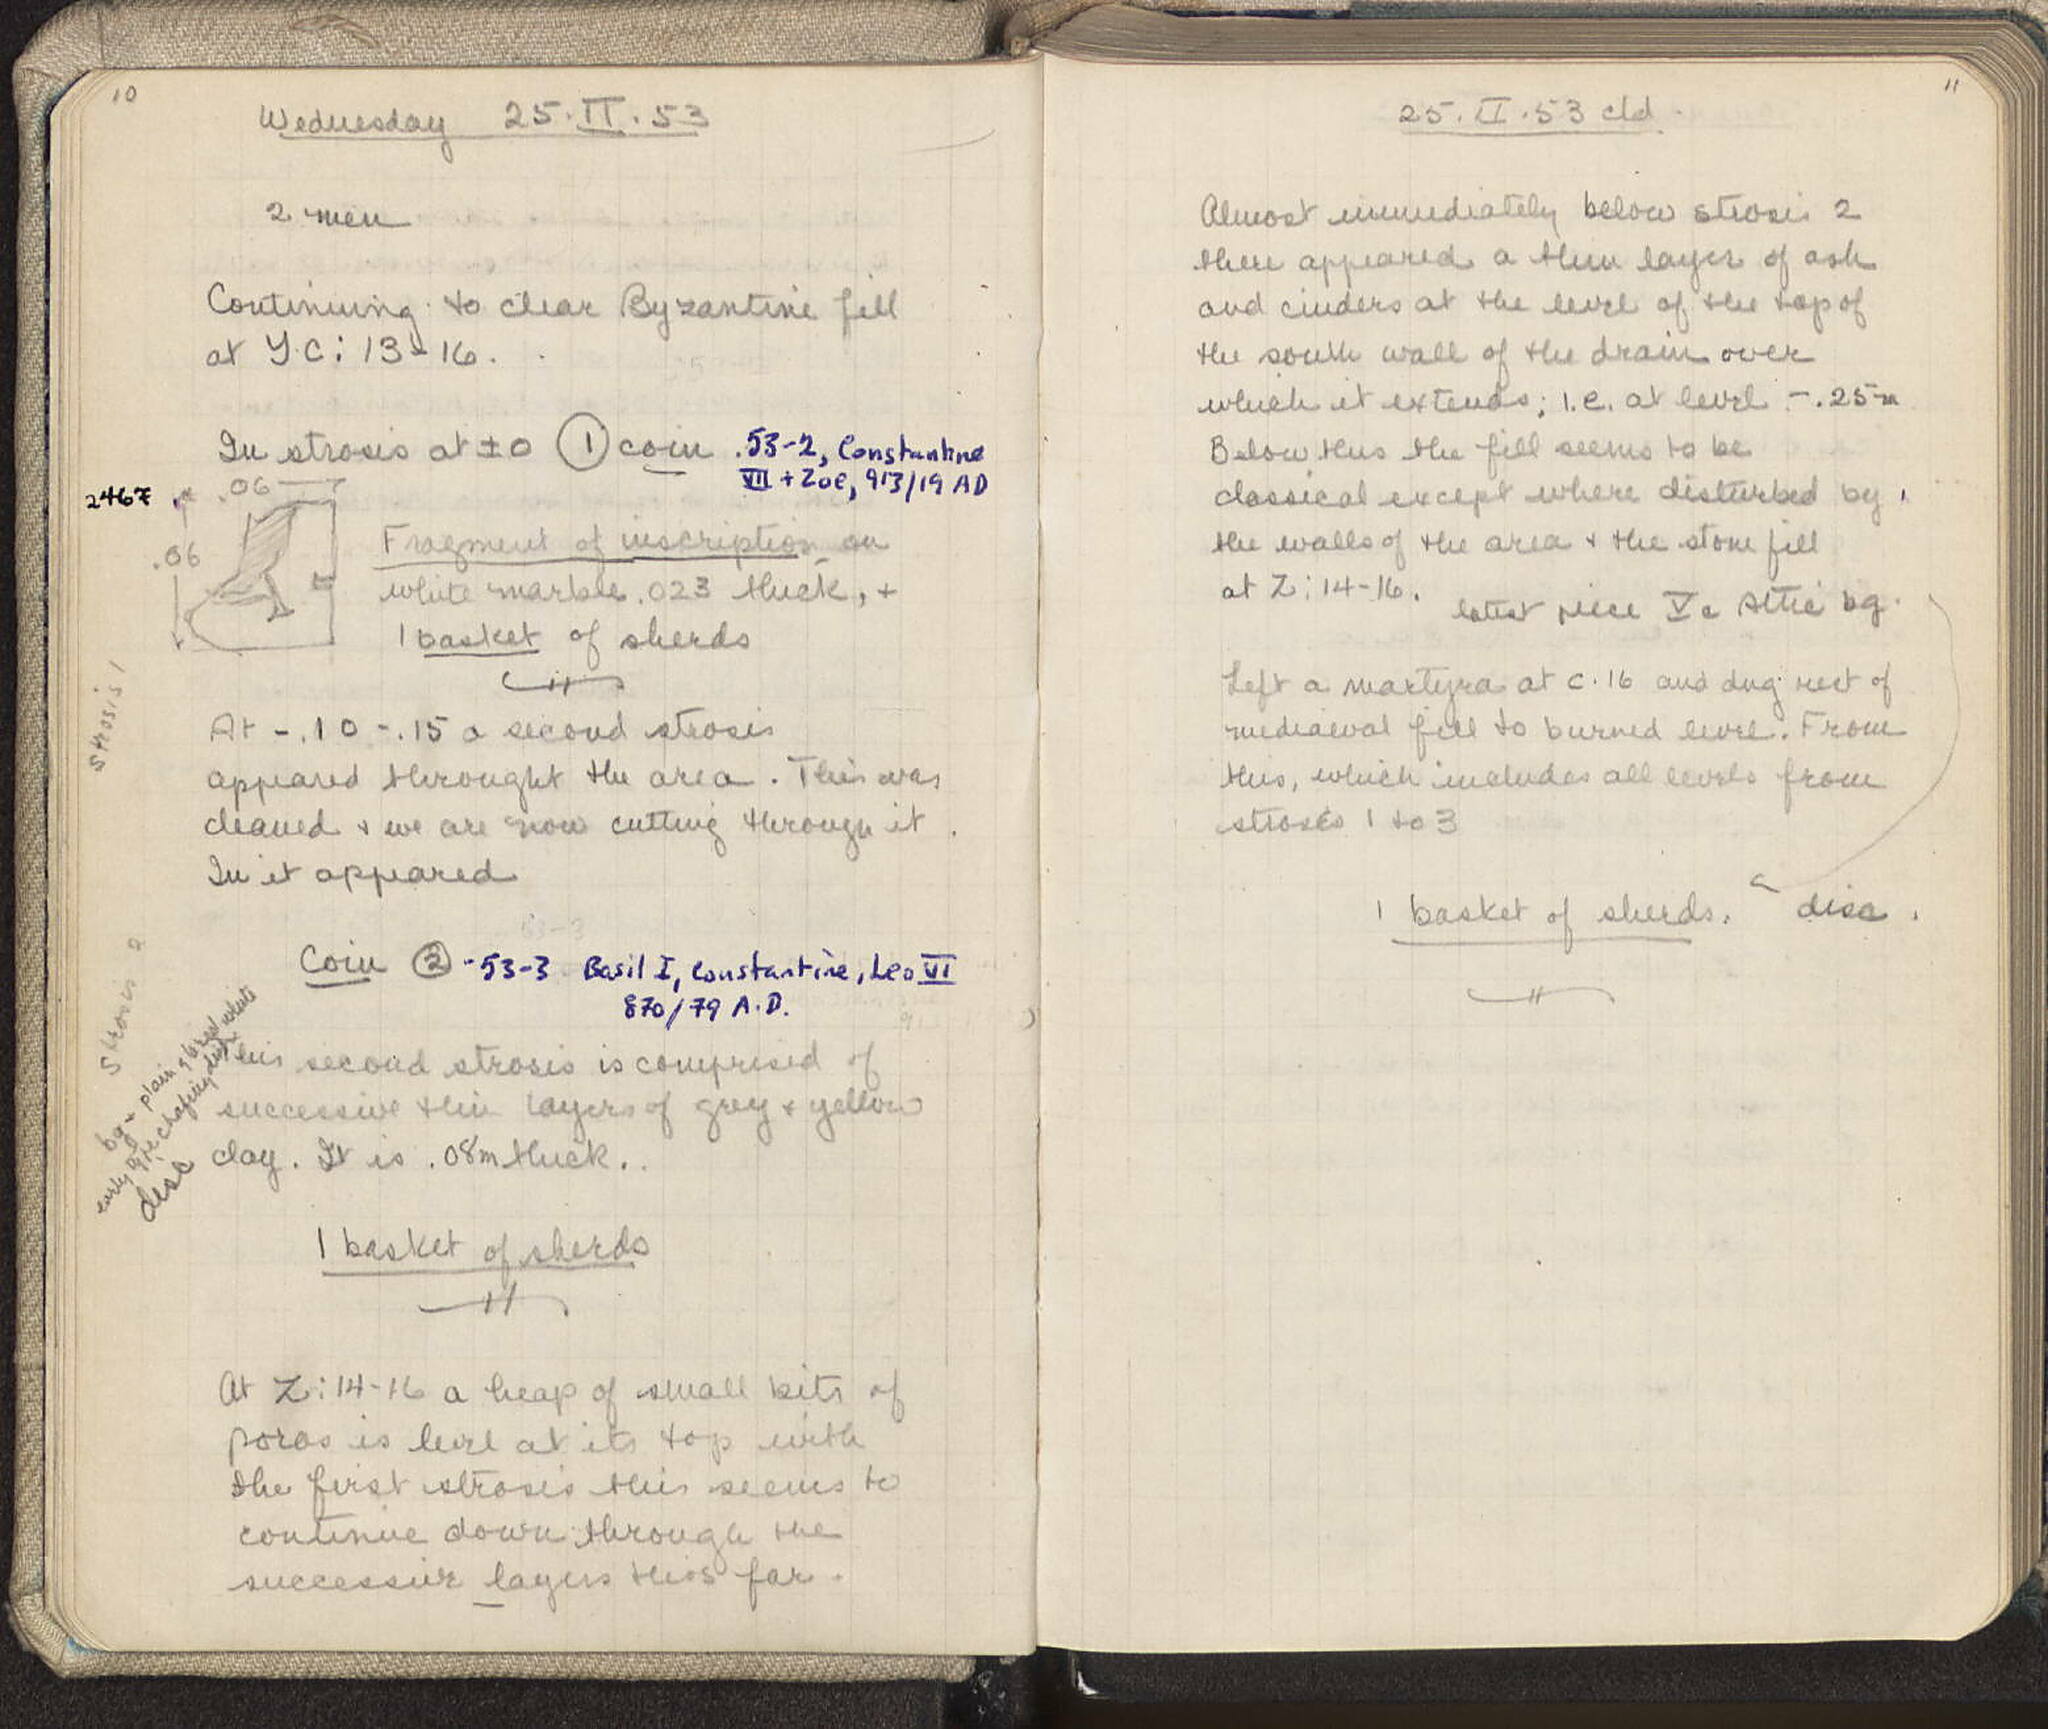 10
Wednesday 25.II.53
2 men
Continuing to clear Byzantine fill
at Y-C: 13-16.
In strosis at ±0 ① coin .53-2, Constantine
VII + Zoe, 913/19 AD
2467
.06
.06
Fragment of inscription on
white marble .023 thick, +
1 basket of sherds
Strosis 1
At -.10 -.15 a second strosis
appeared throught the area. This was
cleaned + we are now cutting through it.
In it appeared
Coin ② -53-3 Basil I, Constantine, Leo VI
870/79 A.D.
Strosis 2
bg + plain glazed white
early gre chafing dish
disc
This second strosis is comprised of
successive thin layers of grey + yellow
clay. It is .08m thick.
1 basket of sherds
At Z: 14-16 a heap of small bits of
poros is level at its top with
the first strosis this seems to
continue down through the
successive layers thus far.
11
25.II.53 ctd.
Almost immediately below strosis 2
there appeared a thin layer of ash
and cinders at the level of the top of
the south wall of the drain over
which it extends; i.e. at level -.25m
Below this the fill seems to be
classical except where disturbed by
the walls of the area + the stone fill
at Z: 14-16.
latest piece Vc Attic bg.
Left a martyra at C.16 and dug rest of
mediaeval fill to burned level. From
this, which includes all levels from
strosis 1 to 3
1 basket of sherds. disc.